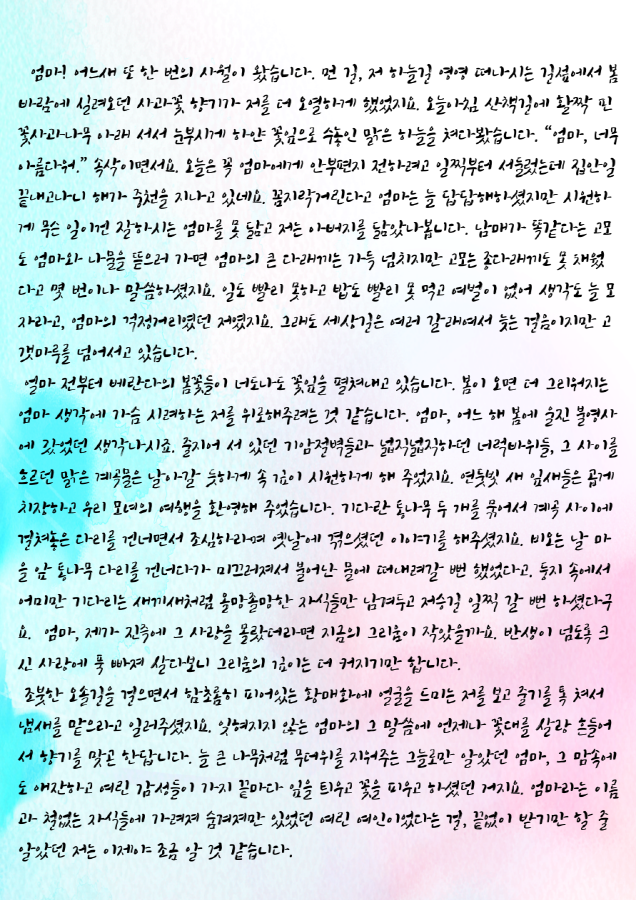 엄마! 어느새 또 한 번의 사월이 왔습니다. 먼 길, 저 하늘길 영영 떠나시는 길섶에서 봄
바람에 실려오던 사과꽃 향기가 저를 더 오열하게 했었지요. 오늘아침 산책길에 활짝 핀
꽃사과나무 아래 서서 눈부시게 하얀 꽃잎으로 수놓인 맑은 하늘을 쳐다봤습니다. “엄마, 너무
아름다워.” 속삭이면서요. 오늘은 꼭 엄마에게 안부편지 전하려고 일찍부터 서둘렀는데 집안일
끝내고나니 해가 중천을 지나고 있네요. 꼼지락거린다고 엄마는 늘 답답해하셨지만 시원하
게 무슨 일이건 잘하시는 엄마를 못 닮고 저는 아버지를 닮았나봅니다. 남매가 똑같다는 고모
도 엄마와 나물을 뜯으러 가면 엄마의 큰 다래끼는 가득 넘치지만 고모는 종다래끼도 못 채웠
다고 몇 번이나 말씀하셨지요. 일도 빨리 못하고 밥도 빨리 못 먹고 여벌이 없어 생각도 늘 모
자라고, 엄마의 걱정거리였던 저였지요. 그래도 세상길은 여러 갈래여서 늦는 걸음이지만 고
갯마루를 넘어서고 있습니다.
얼마 전부터 베란다의 봄꽃들이 너도나도 꽃잎을 펼쳐내고 있습니다. 봄이 오면 더 그리워지는
엄마 생각에 가슴 시려하는 저를 위로해주려는 것 같습니다. 엄마, 어느 해 봄에 울진 불영사
에 갔었던 생각나시죠. 줄지어 서 있던 기암절벽들과 넓직넓직하던 너럭바위들, 그 사이를
흐르던 맑은 계곡물은 날아갈 듯하게 속 깊이 시원하게 해 주었지요. 연둣빛 새 잎새들은 곱게
치장하고 우리 모녀의 여행을 환영해 주었습니다. 기다란 통나무 두 개를 묶어서 계곡 사이에
걸쳐놓은 다리를 건너면서 조심하라며 옛날에 겪으셨던 이야기를 해주셨지요. 비오는 날 마
을 앞 통나무 다리를 건너다가 미끄러져서 불어난 물에 떠내려갈 뻔 했었다고. 둥지 속에서
어미만 기다리는 새끼새처럼 올망졸망한 자식들만 남겨두고 저승길 일찍 갈 뻔 하셨다구
요. 엄마, 제가 진즉에 그 사랑을 몰랐더라면 지금의 그리움이 작았을까요. 반생이 넘도록 크
신 사랑에 푹 빠져 살다보니 그리움의 깊이는 더 커지기만 합니다.
조붓한 오솔길을 걸으면서 함초롬히 피어있는 황매화에 얼굴을 드미는 저를 보고 줄기를 톡 쳐서
냄새를 맡으라고 일러주셨지요. 잊혀지지 않는 엄마의 그 말씀에 언제나 꽃대를 살랑 흔들어
서 향기를 맞곤 한답니다. 늘 큰 나무처럼 무더위를 지워주는 그늘로만 알았던 엄마, 그 맘속에
도 애잔하고 여린 감성들이 가지 끝마다 잎을 틔우고 꽃을 피우고 하셨던 거지요. 엄마라는 이름
과 철없는 자식들에 가려져 숨겨져만 있었던 여린 여인이었다는 걸, 끝없이 받기만 할 줄
알았던 저는 이제야 조금 알 것 같습니다.